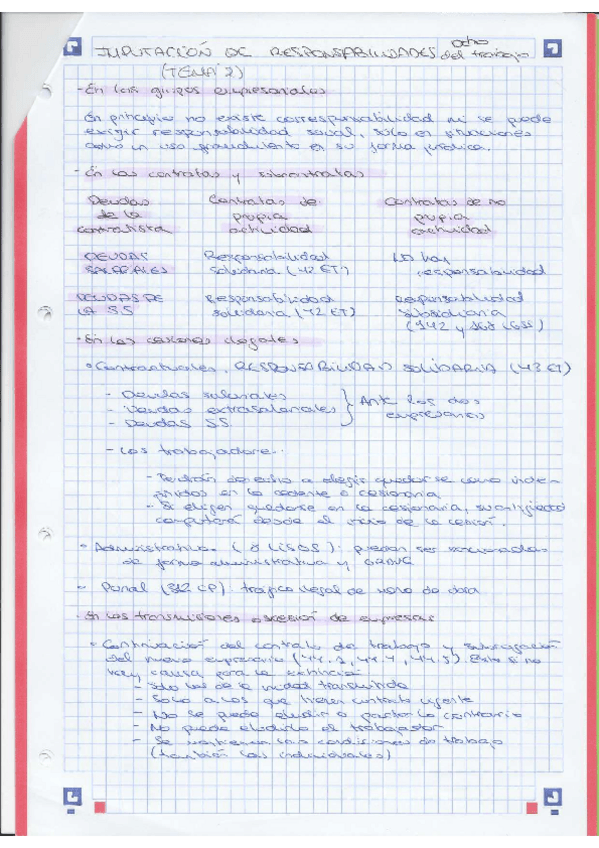 IMPUTACIÓN DE RESPONSABILIDADES dcho del trabajo
(TEMA 2)
- En los grupos empresariales
En principio no existe corresponsabilidad ni se puede
exigir responsabilidad social, sólo en situaciones
como un uso fraudulento en su forma jurídica.
- En las contratas y subcontratas
Deudas de la contratista
Contratas de propia actividad
Contratas de no propia actividad
DEUDAS SALARIALES
Responsabilidad solidaria (42 ET)
No hay responsabilidad
DEUDAS DE LA SS
Responsabilidad solidaria (42 ET)
Responsabilidad subsidiaria (142 y 168 LGSS)
- En las cesiones ilegales
• Contractuales: RESPONSABILIDAD SOLIDARIA (43 ET)
- Deudas salariales
- Deudas extrasalariales
- Deudas SS
Ante los dos
empresarios
- Los trabajadores:
- Tendrán derecho a elegir quedarse como inde-
finidos en la cedente o cesionaria
- Si eligen quedarse en la cesionaria, su antigüedad
computará desde el inicio de la cesión.
• Administrativa (8 LISOS): pueden ser sancionadas
de forma administrativa y
- Penal (312 CP): tráfico ilegal de mano de obra
- En las transmisiones o cesión de empresas
• Continuación del contrato de trabajo y subrogación
del nuevo empresario (44.1, 44.4, 44.5). Este si no
hay causa para la extinción
- Sólo los de la unidad transmitida
- Solo a los que tienen contrato vigente
- No se puede eludir o pactar lo contrario
- No puede eludirlo el trabajador
- Se mantienen las condiciones de trabajo
(también las individuales)